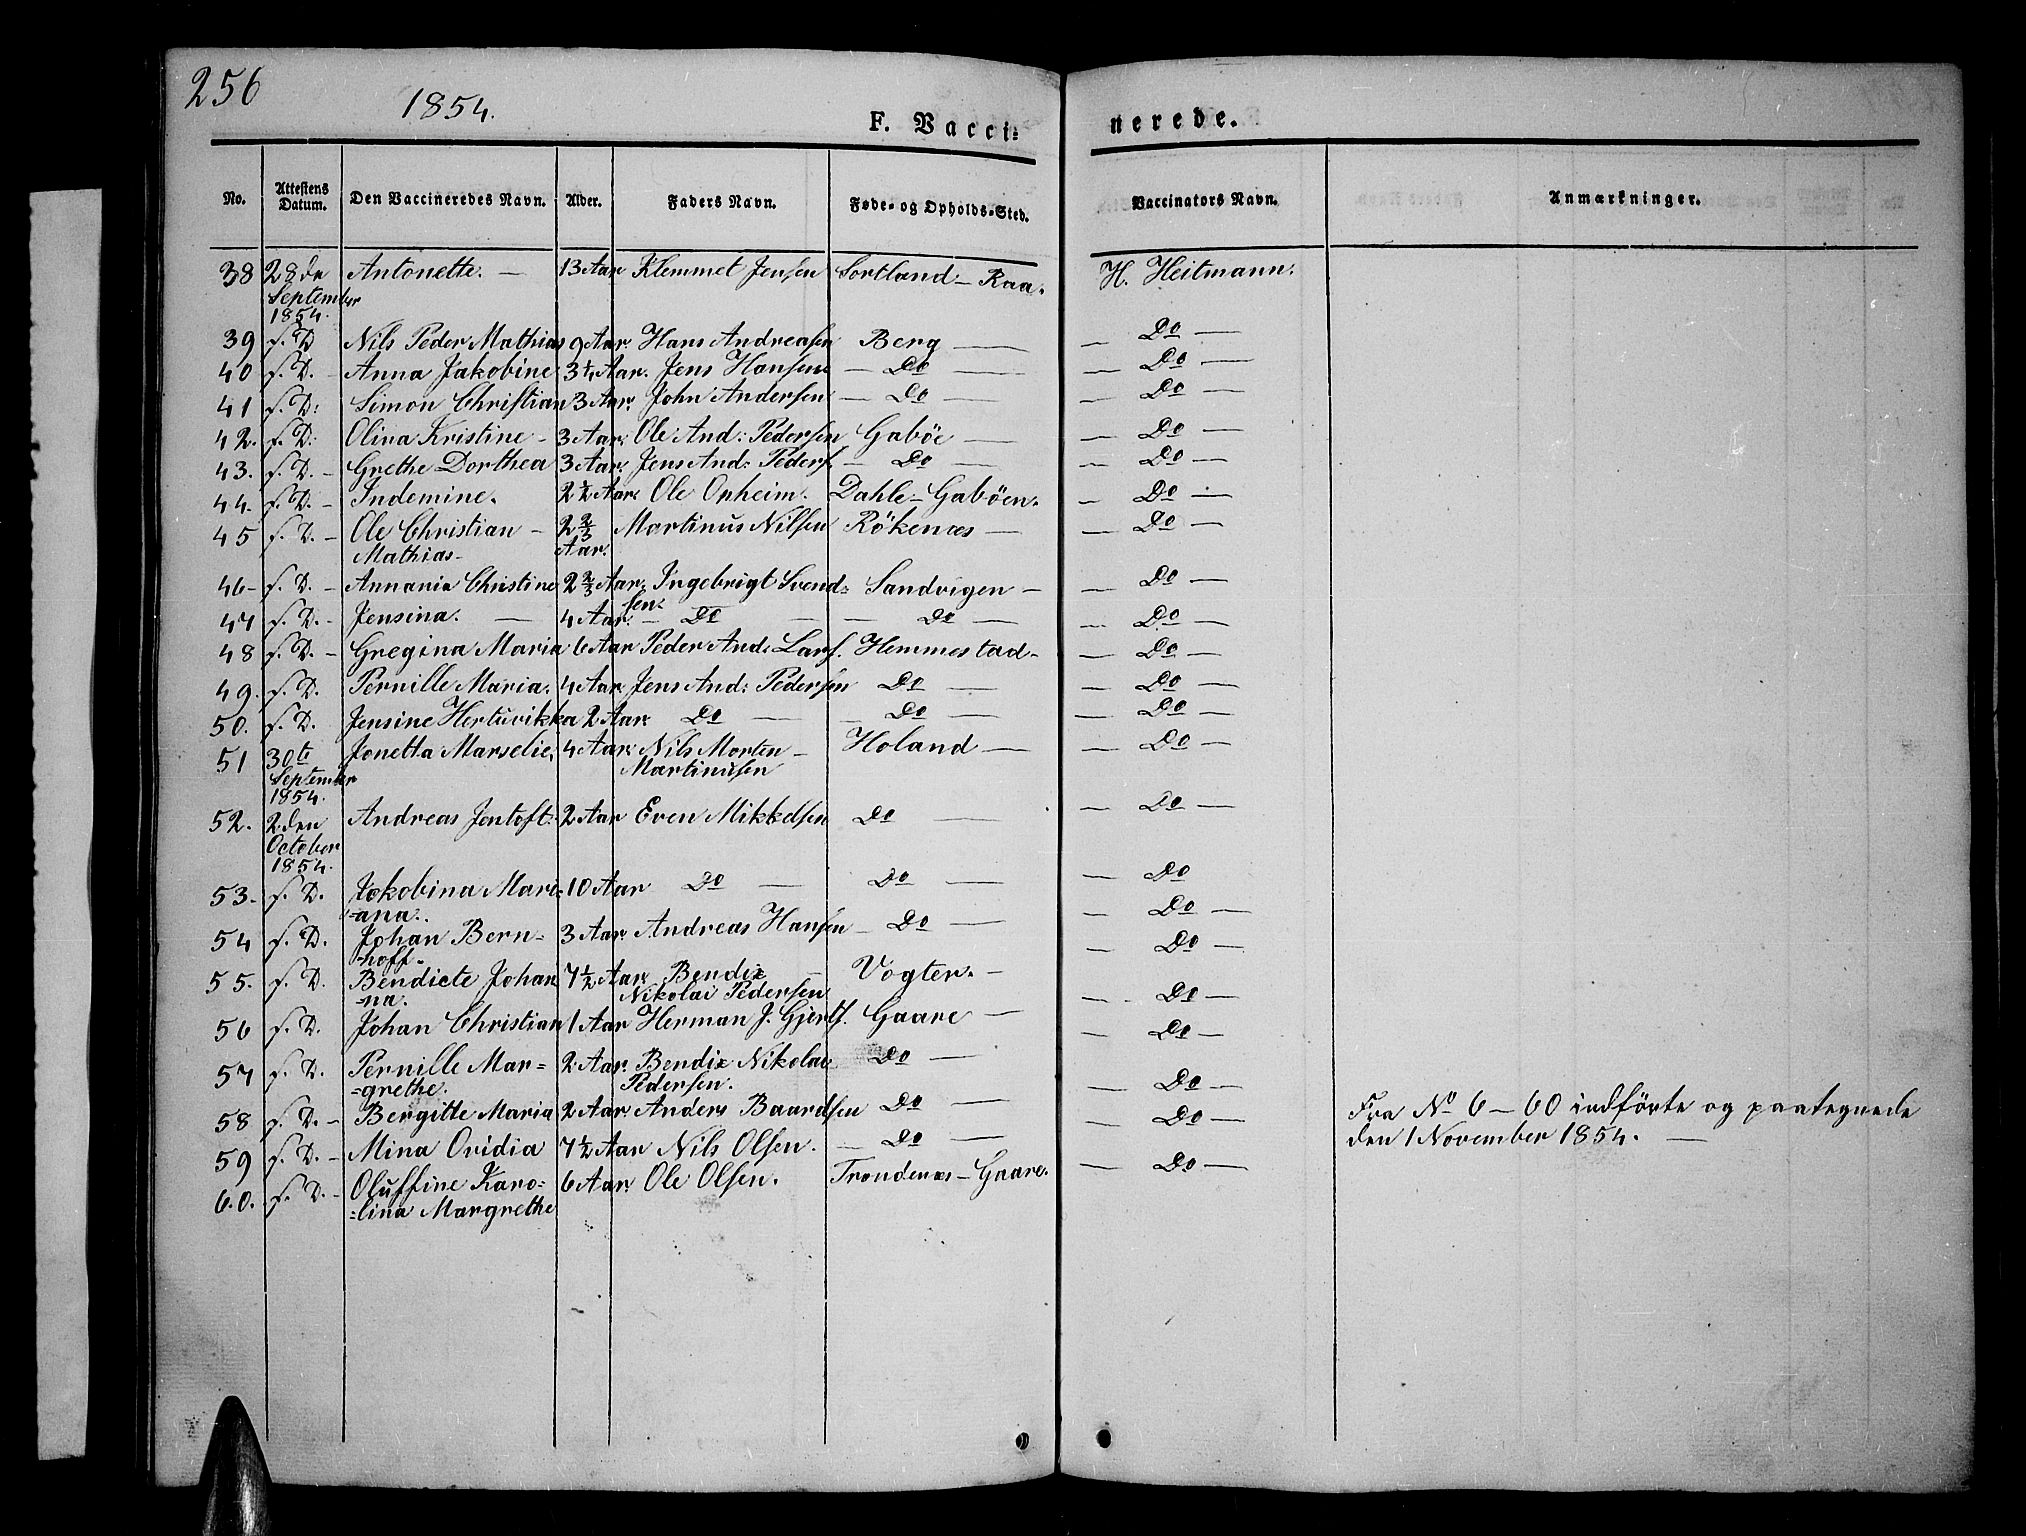 256
1854.
F. Vacci=
nerede.
No. Attestens Datum. Den Vaccineredes Navn. Alder. Faders Navn. Føde- og Opholds-Sted. Vaccinators Navn. Anmærkninger.
38 28de September 1854. Antonette. — 13 Aar Klemmet Jensen Sortland - Raa. H. Heitmann.
39 s. D. Nils Peder Mathias 9 Aar. Hans Andreasen Berg — — Do —
40 s. D. - Anna Jakobine 3 1/4 Aar. Jens Hansen — Do — — Do —
41 s. D: Simon Christian 3 Aar. John Andersen — Do — — Do —
42. s. D: Olina Kristine - 3 Aar. Ole And: Pedersen Gaböe — — Do —
43. s. D. - Grethe Dorthea 3 Aar. Jens And: Peders. — Do — — Do —
44. s. D. - Indemine. 2 1/2 Aar. Ole Opheim. Dahle - Gaböen. — Do —
45 s. D. - Ole Christian - 2 2/3 Aar. Martinus Nilsen Rökenæs — — Do —
Mathias -
46 - s. D. - Annania Christine 2 2/3 Aar. Ingebrigt Svend= Sandvigen — — Do —
sen.
47 s. D. - Jensina. — 4 Aar. — Do — — Do — — Do —
48 s. D. - Gregina Maria 6 Aar Peder And: Lars. Hemmestad - — Do —
49. s. D. Pernille Maria. 4 Aar Jens And: Pedersen Do — — Do —
50. s. D. Jensine Hertuvikka 2 Aar. Do — — Do — — Do —
51 30te September 1854. Jonetta Marselie. 4 Aar. Nils Morten - Holand — — Do —
Martinusen
52. 2den October 1854. Andreas Jentoft. 2 Aar Even Mikkelsen Do — — Do —
53. s. D. Jakobina Mari= 10 Aar Do — Do — — Do
=ana.
54 s. D. Johan Bern= 3 Aar. Andreas Hansen — Do — — Do —
=hoff.
55. s. D. Bendicte Johan 7 1/2 Aar. Bendix — Vogter. — — Do —
=na. Nikolai Pedersen
56 s. D. Johan Christian 1 Aar Herman J. Gjerts. Gaare — — Do —
57 s. D. Pernille Mar= 2 Aar. Bendix Nikolai Do — — Do —
=grethe. Pedersen.
58 s. D. - Bergitte Maria 2 Aar. Anders Baardsen Do — — Do —
59 s. D. - Mina Ovidia 7 1/2 Aar Nils Olsen. — Do — — Do —
60. s. D. - Oluffine Karo= 6 Aar. Ole Olsen. Trondenæs - Gaare. — Do —
=lina Margrethe
Fra No 6 - 60 indförte og paategnede
den 1 November 1854. —